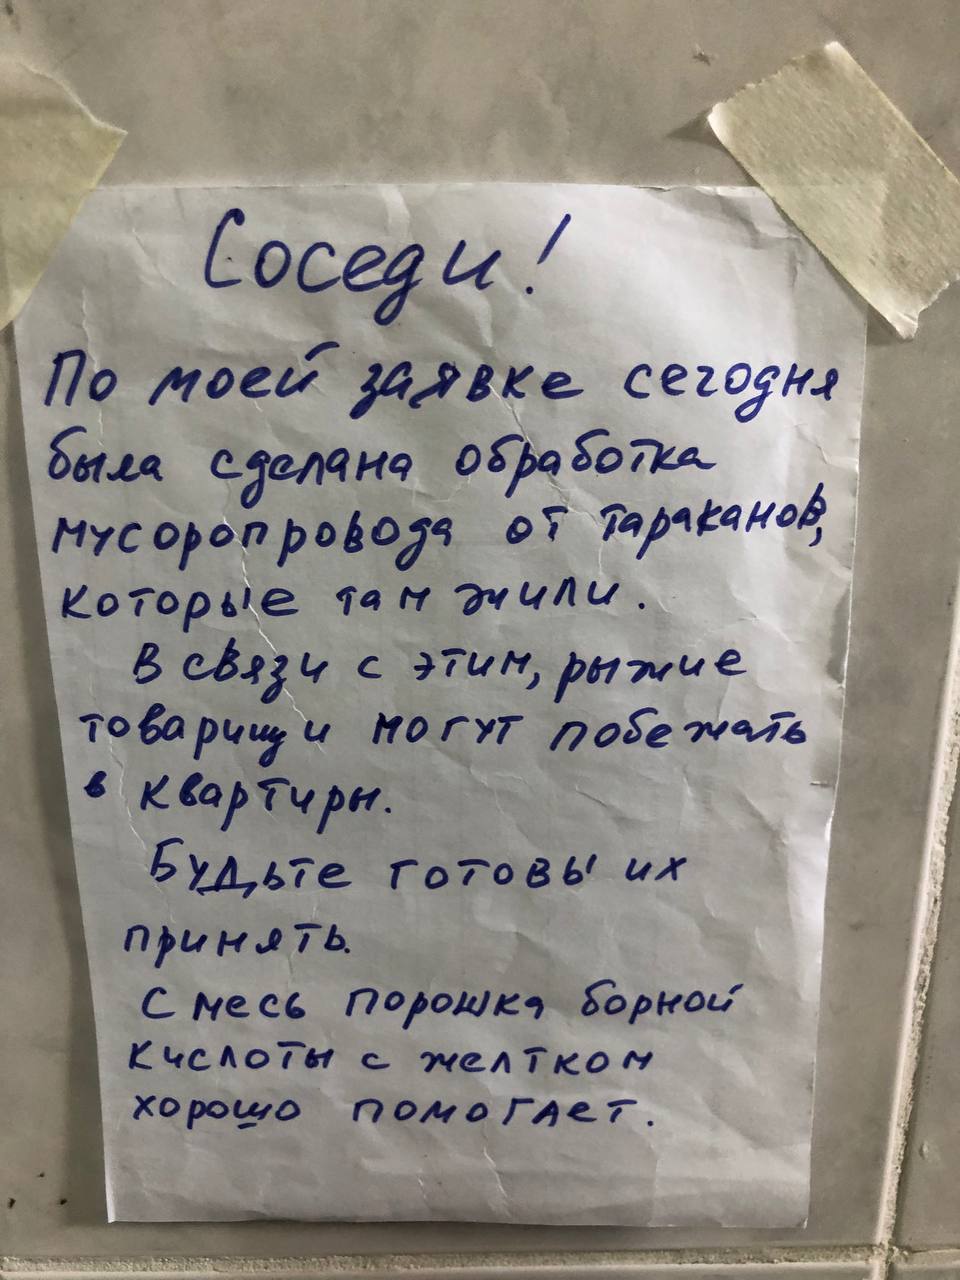 Соседи!
По моей заявке сегодня
была сделана обработка
мусоропровода от тараканов,
которые там жили.
В связи с этим, рыжие
товарищи могут побежать
в квартиры.
Будьте готовы их
принять.
Смесь порошка борной
кислоты с желтком
хорошо помогает.